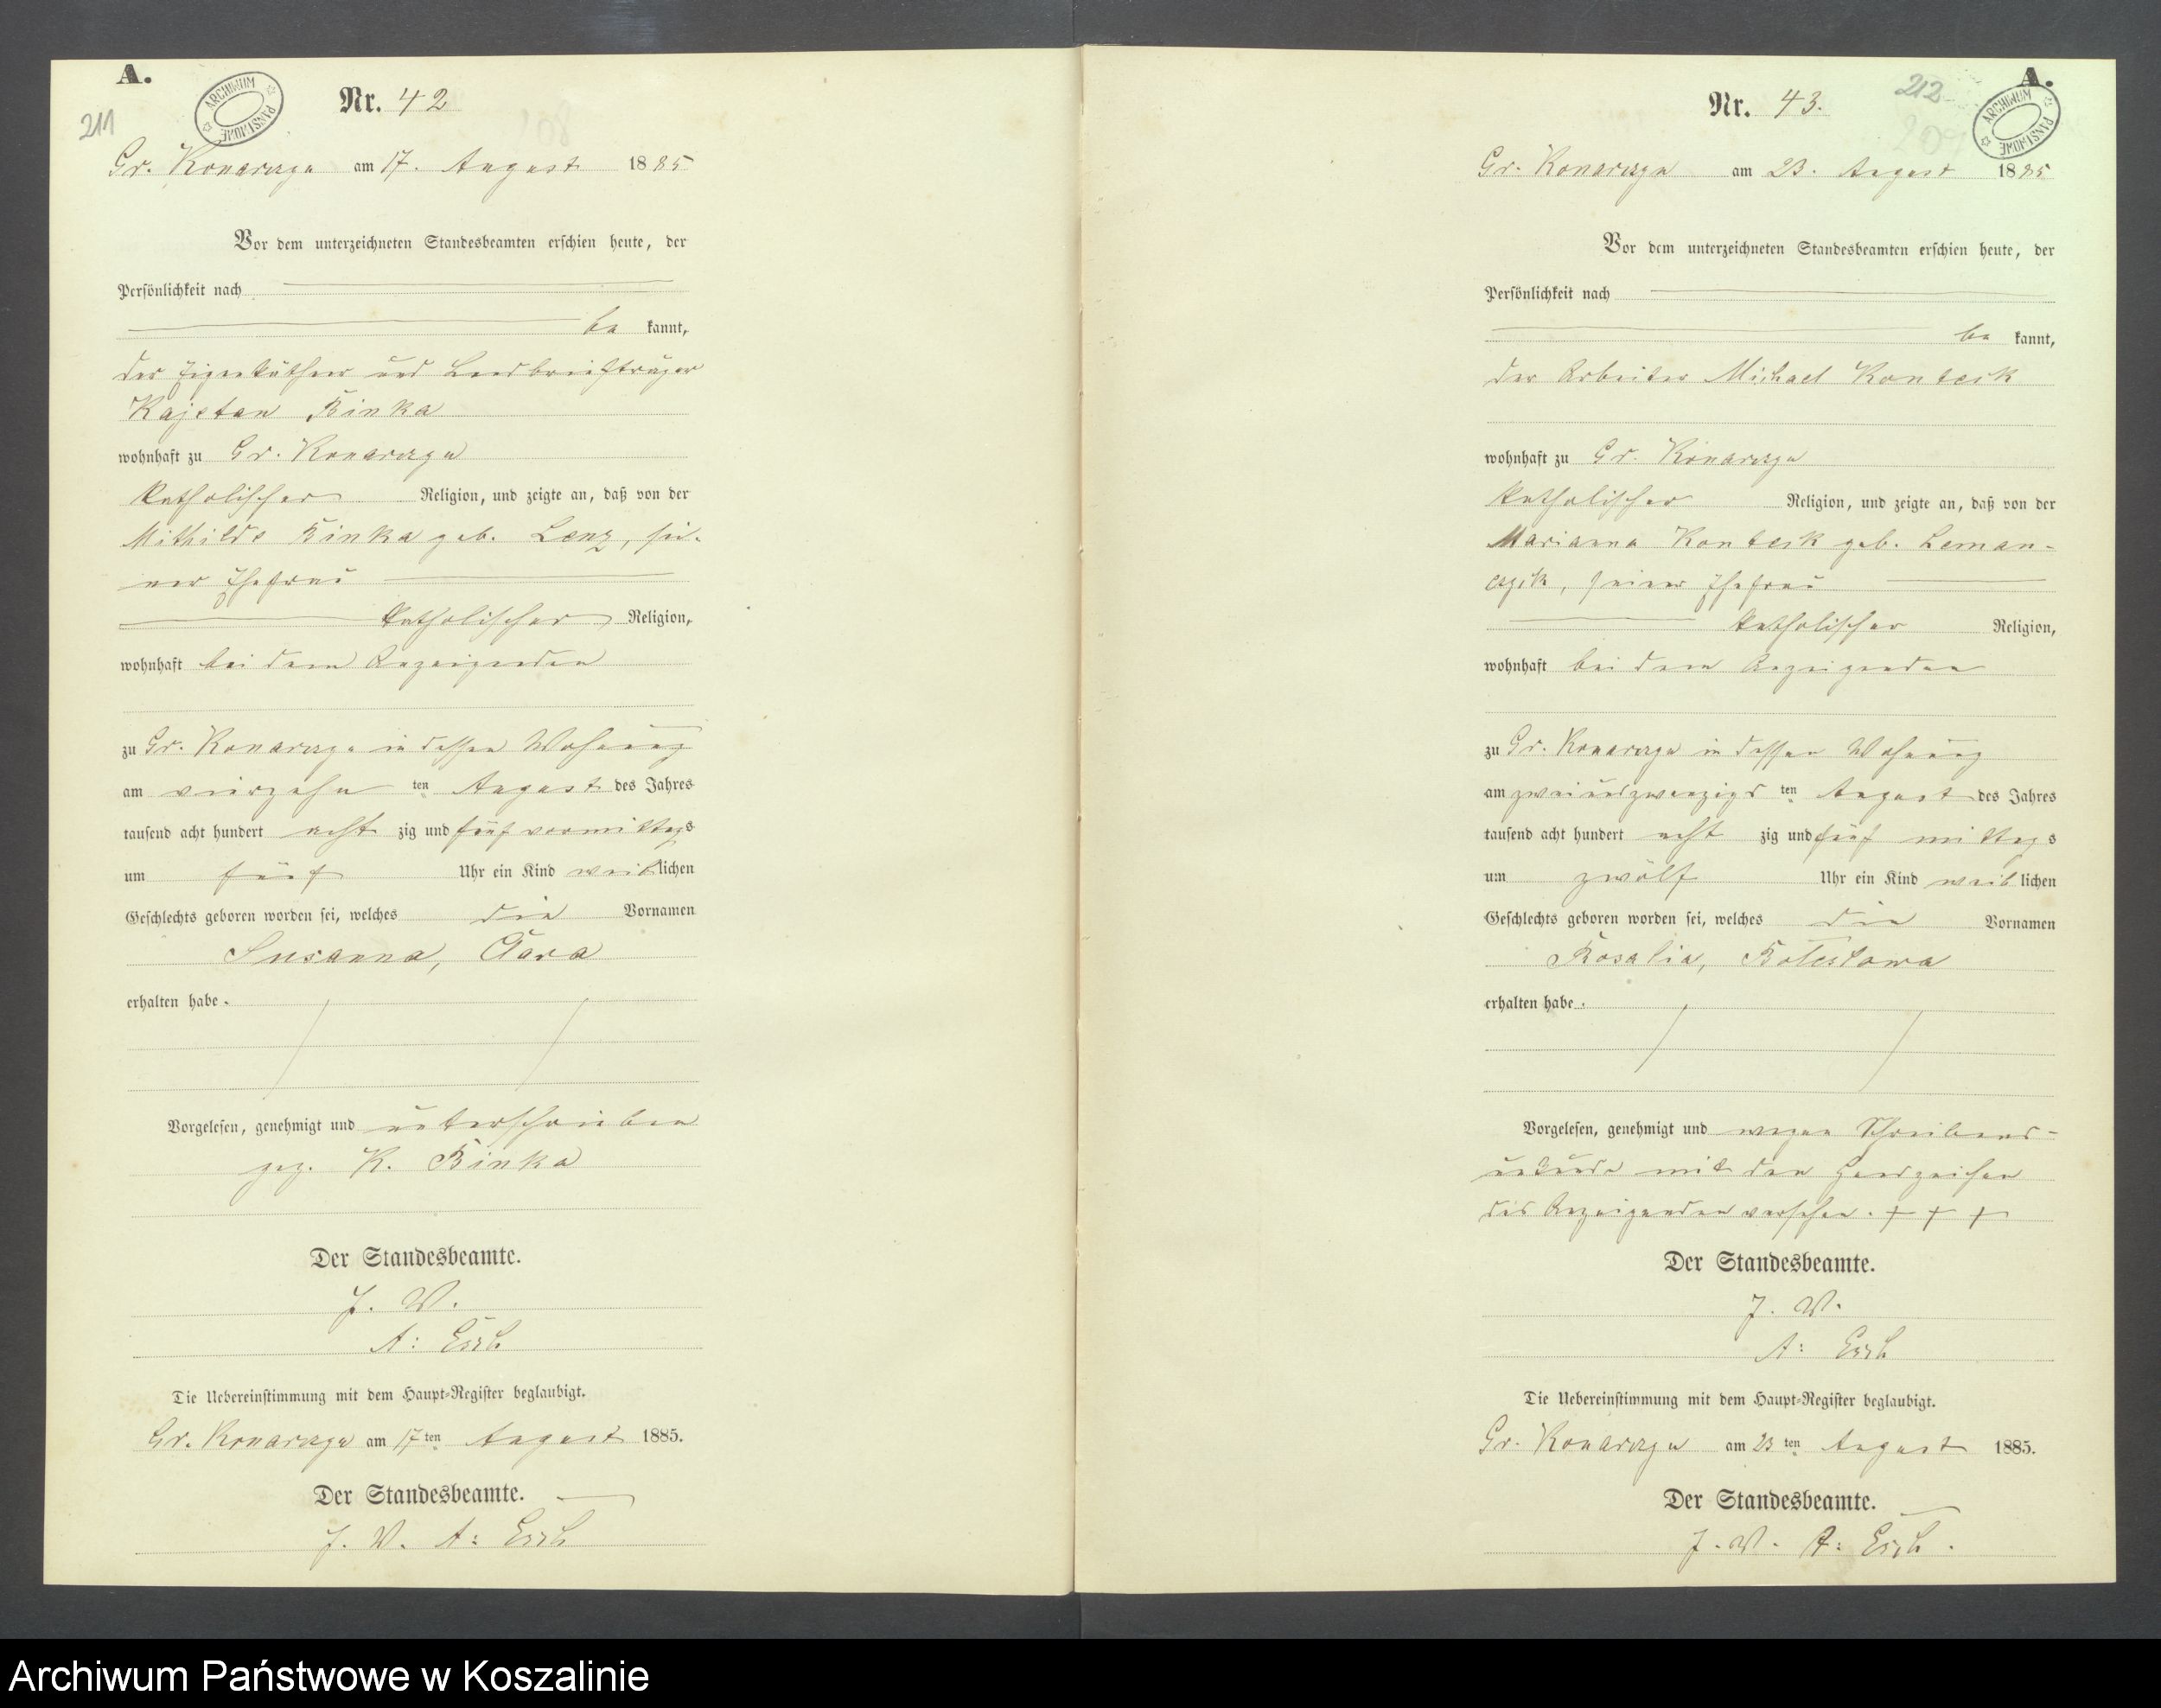 A.
211
ARCHIWUM PAŃSTWOWE
Nr. 42
Gr. Konarczyn am 17. August 1885
Vor dem unterzeichneten Standesbeamten erschien heute, der
Persönlichkeit nach
be kannt,
der Eigenkäthner und Landbriefträger
Kajetan Binka
wohnhaft zu Gr. Konarczyn
katholischer Religion, und zeigte an, daß von der
Mithilde Binka geb. Lenz, sei-
ner Ehefrau
katholischer Religion,
wohnhaft bei dem Anzeigenden
zu Gr. Konarczyn in dessen Wohnung
am vierzehn ten August des Jahres
tausend acht hundert acht zig und fünf vormittags
um fünf Uhr ein Kind weiblichen
Geschlechts geboren worden sei, welches die Vornamen
Susanna, Clara
erhalten habe.
Vorgelesen, genehmigt und unterschrieben
gez. K. Binka
Der Standesbeamte.
J. V.
A:
Die Uebereinstimmung mit dem Haupt-Register beglaubigt.
Gr. Konarczyn am 17ten August 1885.
Der Standesbeamte.
J. V. A:
A.
212
ARCHIWUM PAŃSTWOWE
Nr. 43.
Gr. Konarczyn am 23. August 1885
Vor dem unterzeichneten Standesbeamten erschien heute, der
Persönlichkeit nach
be kannt,
der Arbeiter Michael Kontek
wohnhaft zu Gr. Konarczyn
katholischer Religion, und zeigte an, daß von der
Marianna geb. Leman-
czik, seiner Ehefrau
katholischer Religion,
wohnhaft bei dem Anzeigenden
zu Gr. Konarczyn in dessen Wohnung
am zweiundzwanzigs ten August des Jahres
tausend acht hundert acht zig und fünf mittags
um zwölf Uhr ein Kind weiblichen
Geschlechts geboren worden sei, welches die Vornamen
Rosalia, Boleslawa
erhalten habe.
Vorgelesen, genehmigt und wegen Schreibens-
unkunde mit den Handzeichen
des Anzeigenden versehen. + + +
Der Standesbeamte.
J. V.
A:
Die Uebereinstimmung mit dem Haupt-Register beglaubigt.
Gr. Konarczyn am 23 ten August 1885.
Der Standesbeamte.
J. V. A:
Archiwum Państwowe w Koszalinie